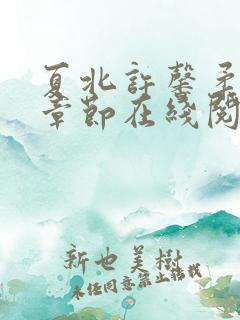 夏北許馨予
章節在綫閱
新也美樹
未經同意禁止轉載